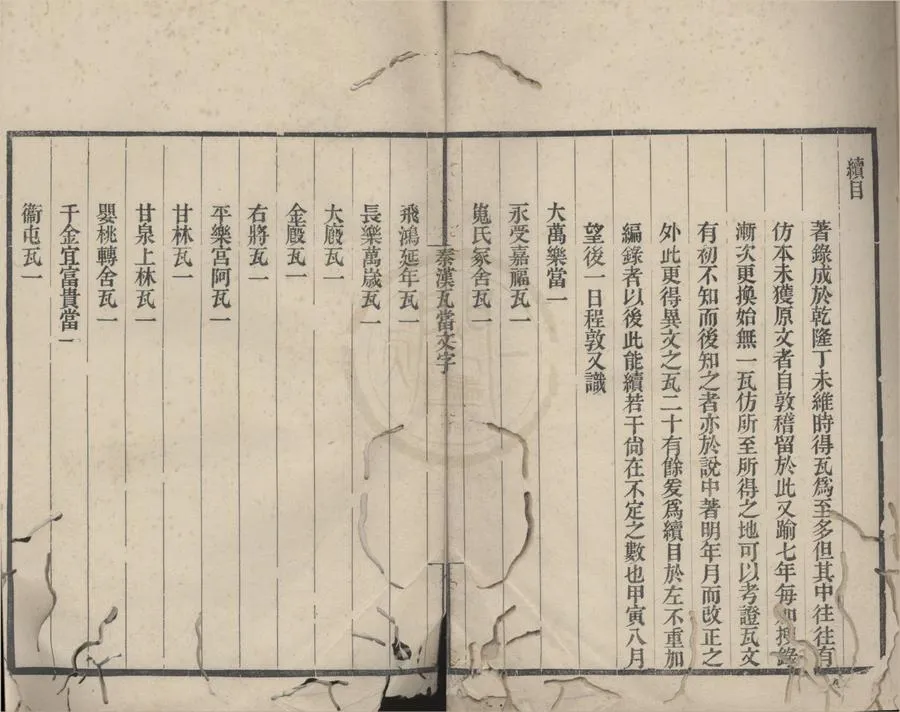 續目
著錄成於乾隆丁未維時得瓦爲至多但其中往往有
仿本未獲原文者自敦稽留於此又踰七年每加搜錄
漸次更換始無一瓦仿所至所得之地可以考證瓦文
有初不知而後知之者亦於說中著明年月而改正之
外此更得異文之瓦二十有餘爰爲續目於左不重加
編錄者以後此能續若干尙在不定之數也甲寅八月
望後一日程敦又識
大萬樂當一
永受嘉福瓦一
嵬氏冢舍瓦一
秦漢瓦當文字
飛鴻延年瓦一
長樂萬歲瓦一
大廄瓦一
金廄瓦一
右將瓦一
平樂宮阿瓦一
甘林瓦一
甘泉上林瓦一
嬰桃轉舍瓦一
千金宜富貴當一
衞屯瓦一